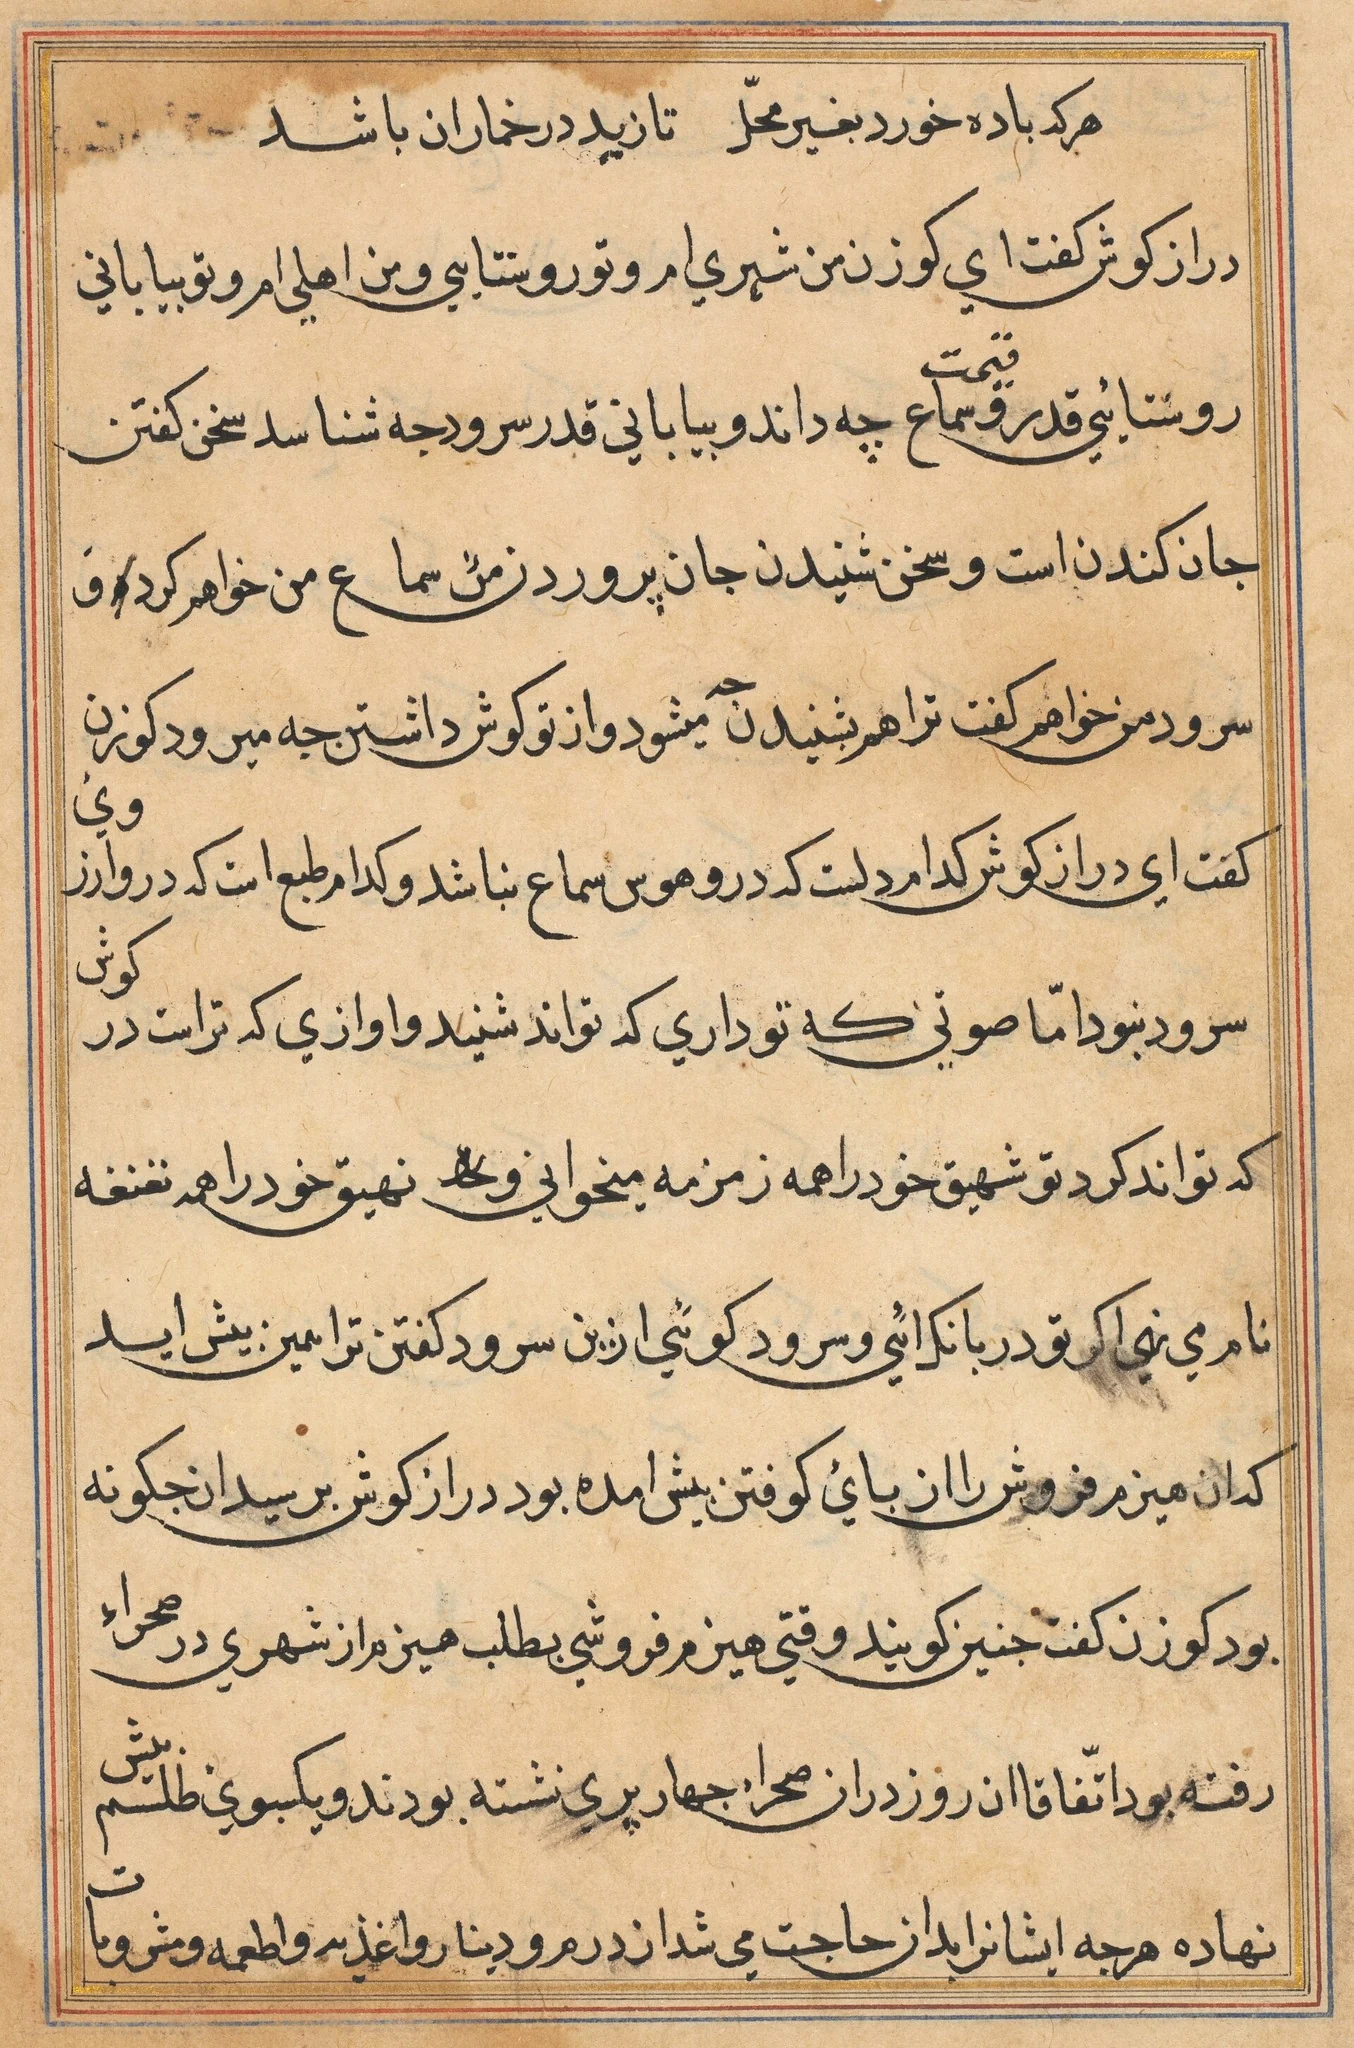 هرکه باده خورد بغیر محلّ تا زید در خماران باشد
دراز کوش کفت ای کوزن من شهری ام و تو روستایی و من اهلی ام و تو بیابانی
روستایی قدر و قیمت سماع چه داند و بیابانی قدر سرود جه شناسد سخن کفتن
جان کندن است و سخن شنیدن جان پروردن سماع من خواهم کرد و
سرود من خواهم کفت ترا هم بشنیدن جه میشود و از تو کوش داشتن جه میرود کوزن
کفت ای دراز کوش کدام دلست که درو هوس سماع نباشد و کدام طبع است که درو ارزوی
سرود نبود امّا صوتی که تو داری که تواند شنید و اوازی که تراست در کوش
که تواند کرد تو شهیق خود را همه زمزمه میخوانی و نهیق خود را همه نغنغه
نام می نهی اکر تو در بانک ائی و سرود کوئی ازین سرود کفتن ترا همین بیش اید
که ان هیزم فروش را از بای کوفتن بیش امده بود دراز کوش برسید ان جکونه
بود کوزن کفت جنین کویند وقتی هیزم فروشی بطلب هیزم از شهری در صحراء
رفته بود اتّفاقا ان روز در ان صحراء جهار پری نشته بودند و یکسبوی طلسم بیش
نهاده هرجه ایشانرا بدان حاجت می شد از درم و دینار و اغذیه و اطعمه و مشروبات